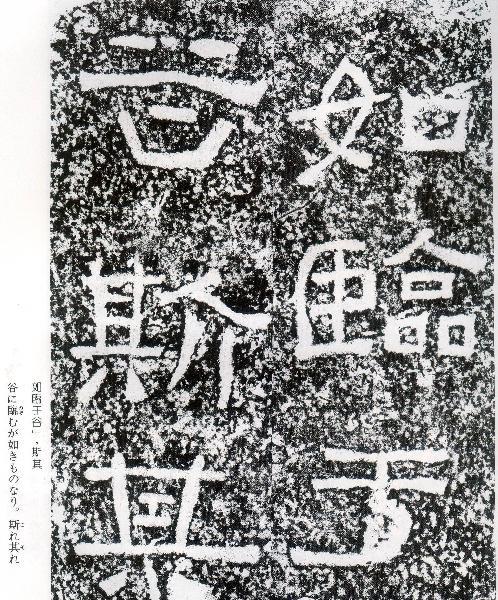 如臨于
谷斯其
如臨于谷」・斯其
谷に臨むが如きものなり。斯れ其れ